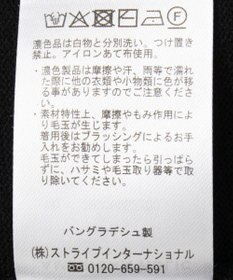 濃色品は白物と分別洗い。つけ置き
禁止。アイロンあて布使用。
・濃色製品は摩擦や汗、雨等で濡れ
た際に他の衣類や小物類に色が移
る事がありますのでご注意くださ
い。
・素材特性上、摩擦やもみ作用によ
り毛玉が生じます。
着用後はブラッシングによるお手
入れをお勧めします。
毛玉ができてしまったら引っぱら
ずに、ハサミや毛玉取り器等で取
り除いてください。
バングラデシュ製
(株)ストライプインターナショナル
0120-659-591